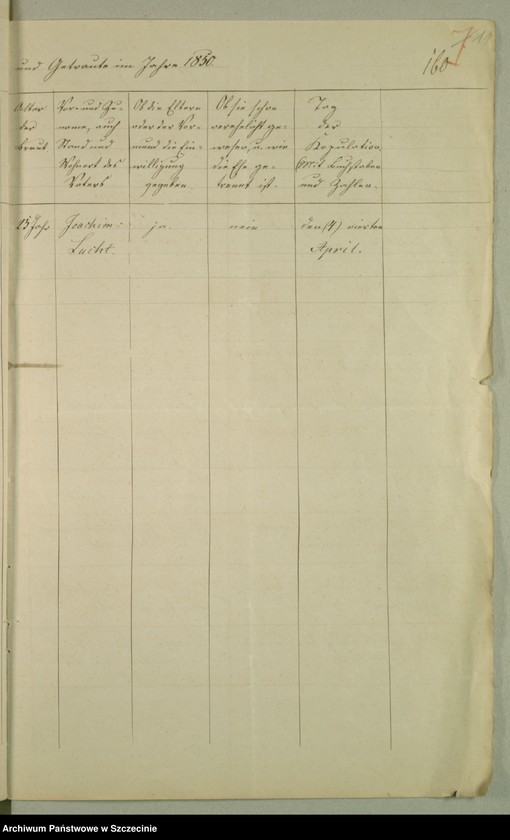 und Getraute im Jahre 1850.
160
Alter
der
Braut
Vor- und Zu-
name, auch
Stand und
Wohnort des
Vaters
Ob die Eltern
oder der Vor-
mund die Ein-
willigung
gegeben
Ob sie schon
verehelicht ge-
wesen, u. wie
die Ehe ge-
trennt ist.
Tag
der
Kopulation,
(mit Buchstaben
und Zahlen.
Jahr
Joachim
Lucht.
ja.
nein
den (4) vierten
April.
Archiwum Państwowe w Szczecinie